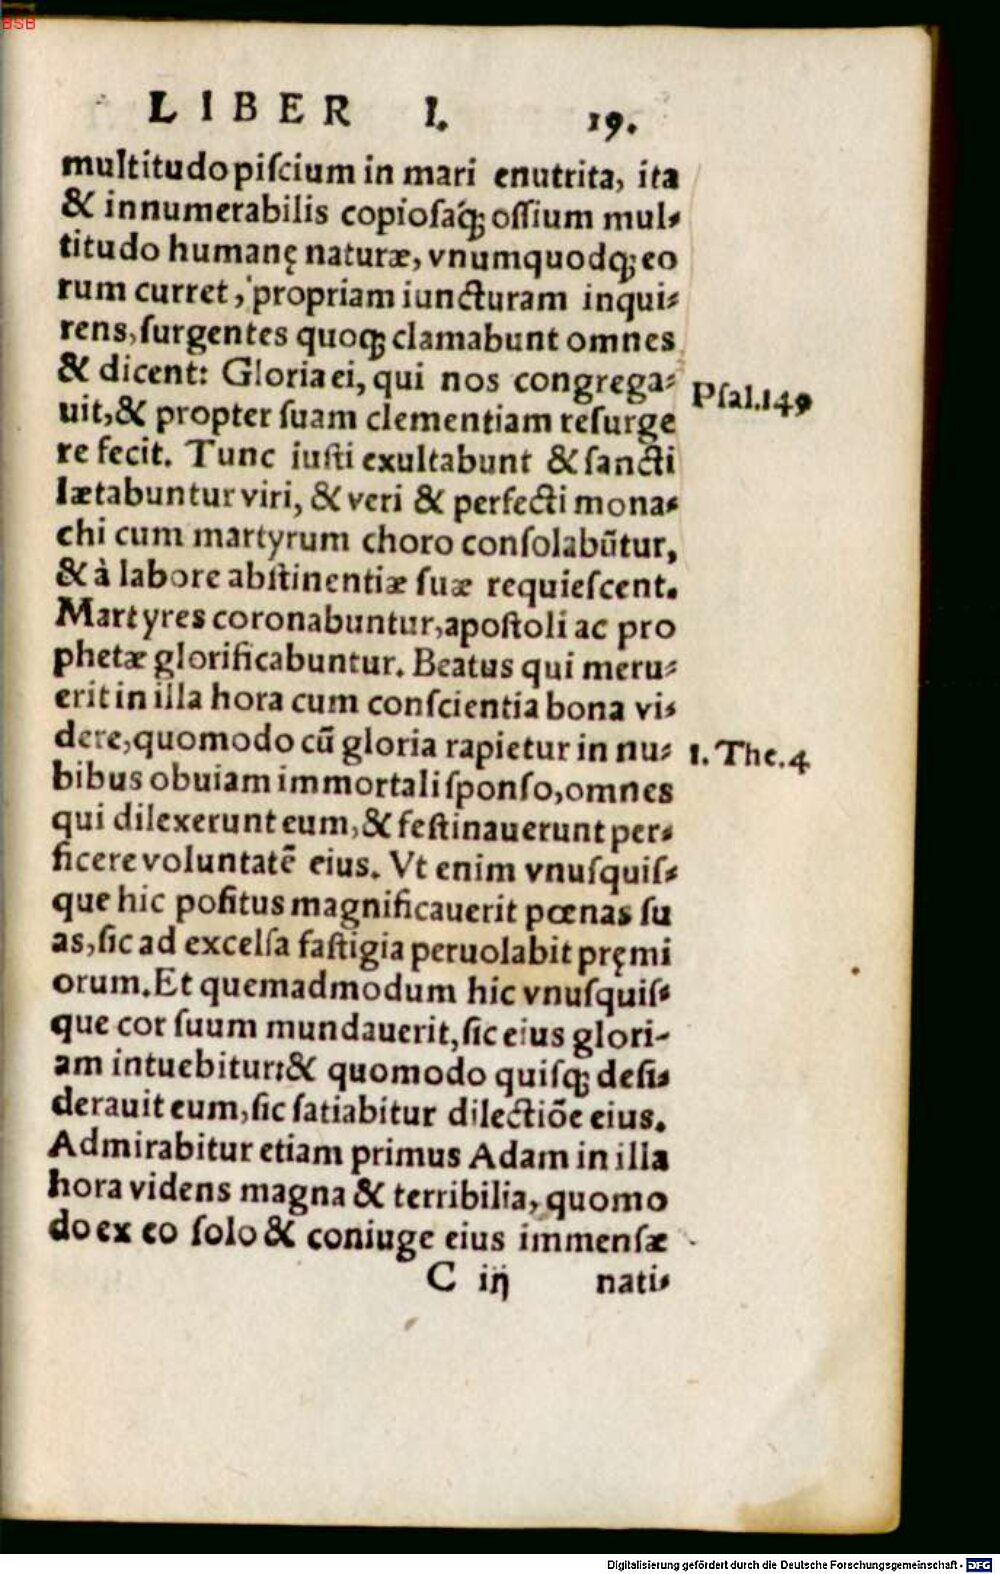 BSB
LIBER I. 19.
multitudo piſcium in mari enutrita, ita
& innumerabilis copioſaq́; oſſium mul-
titudo humanę naturæ, vnumquodq; eo
rum curret, propriam iuncturam inqui-
rens, ſurgentes quoq; clamabunt omnes
& dicent: Gloria ei, qui nos congrega-
uit, & propter ſuam clementiam reſurge
re fecit. Tunc iuſti exultabunt & ſancti
lætabuntur viri, & veri & perfecti mona-
chi cum martyrum choro conſolabũtur,
& à labore abſtinentiæ ſuæ requieſcent.
Martyres coronabuntur, apoſtoli ac pro
phetæ glorificabuntur. Beatus qui meru-
erit in illa hora cum conſcientia bona vi-
dere, quomodo cũ gloria rapietur in nu-
bibus obuiam immortali ſponſo, omnes
qui dilexerunt eum, & feſtinauerunt per-
ficere voluntatẽ eius. Vt enim vnuſquiſ-
que hic poſitus magnificauerit pœnas ſu
as, ſic ad excelſa faſtigia peruolabit pręmi
orum. Et quemadmodum hic vnuſquiſ-
que cor ſuum mundauerit, ſic eius glori-
am intuebitur: & quomodo quiſq; deſi-
derauit eum, ſic ſatiabitur dilectiõe eius.
Admirabitur etiam primus Adam in illa
hora videns magna & terribilia, quomo
do ex eo ſolo & coniuge eius immenſæ
C iij nati-
Pſal.149
1. The.4
Digitalisierung gefördert durch die Deutsche Forschungsgemeinschaft - DFG